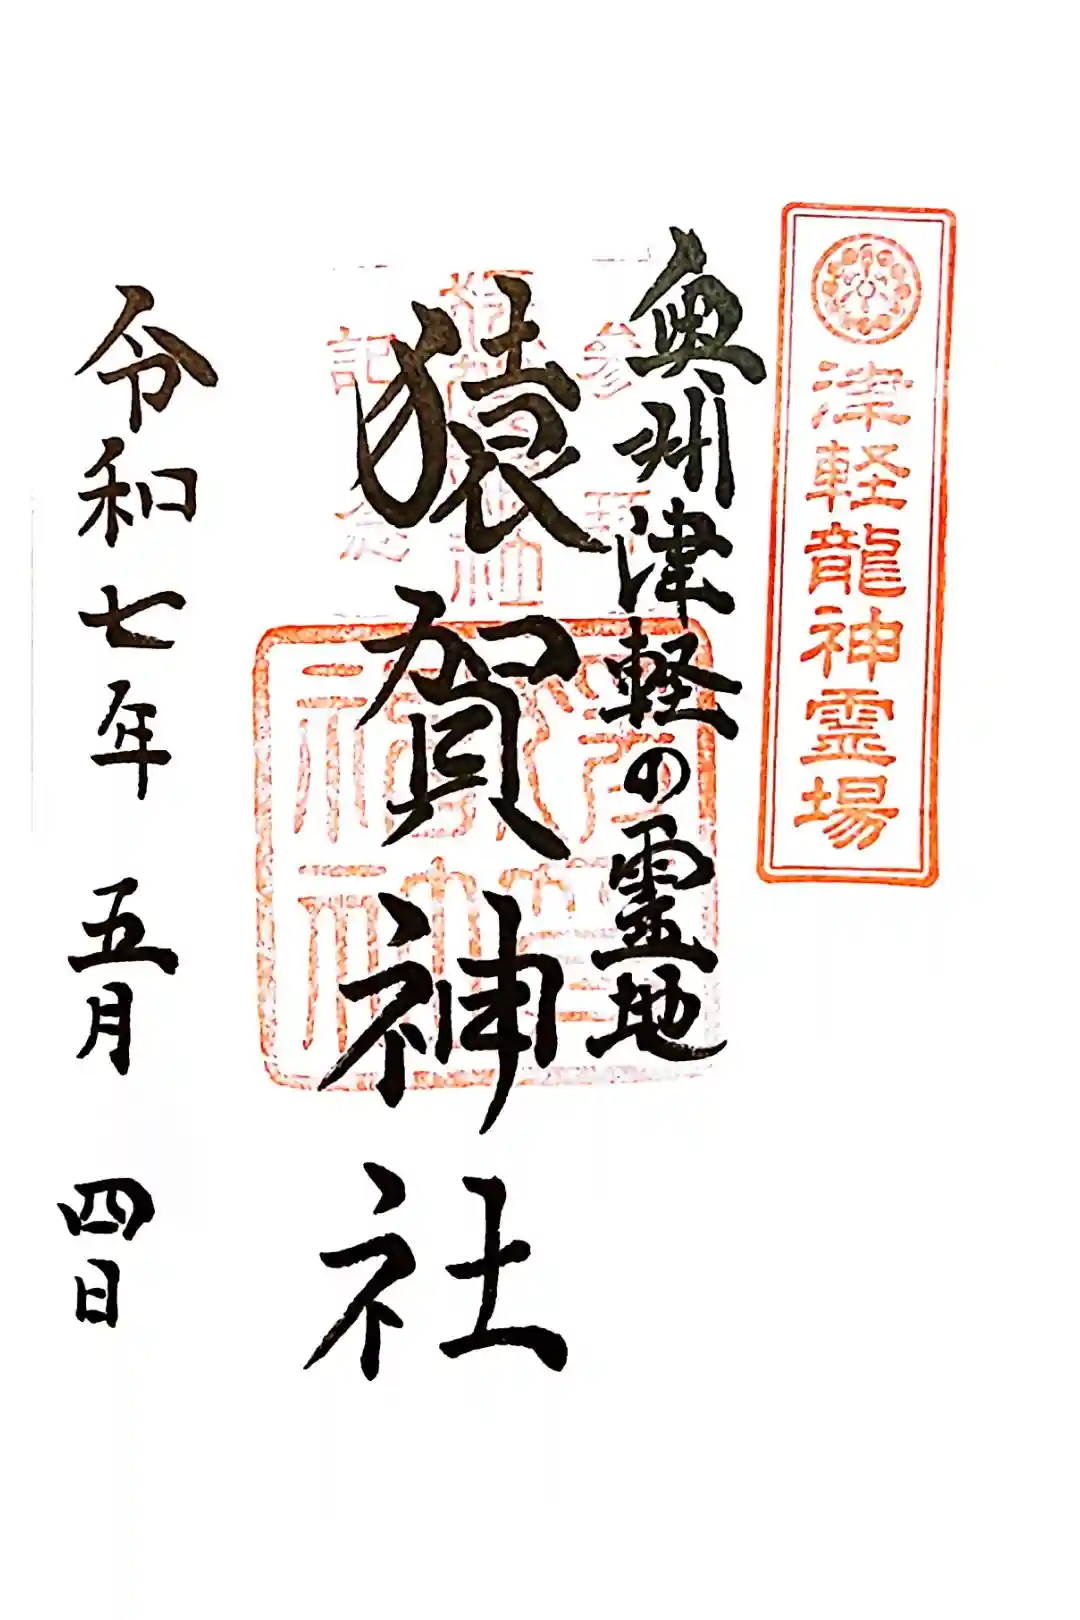 津軽龍神霊場
奥州津軽の霊地
参拝
記念
猿賀神社
令和七年 五月 四日